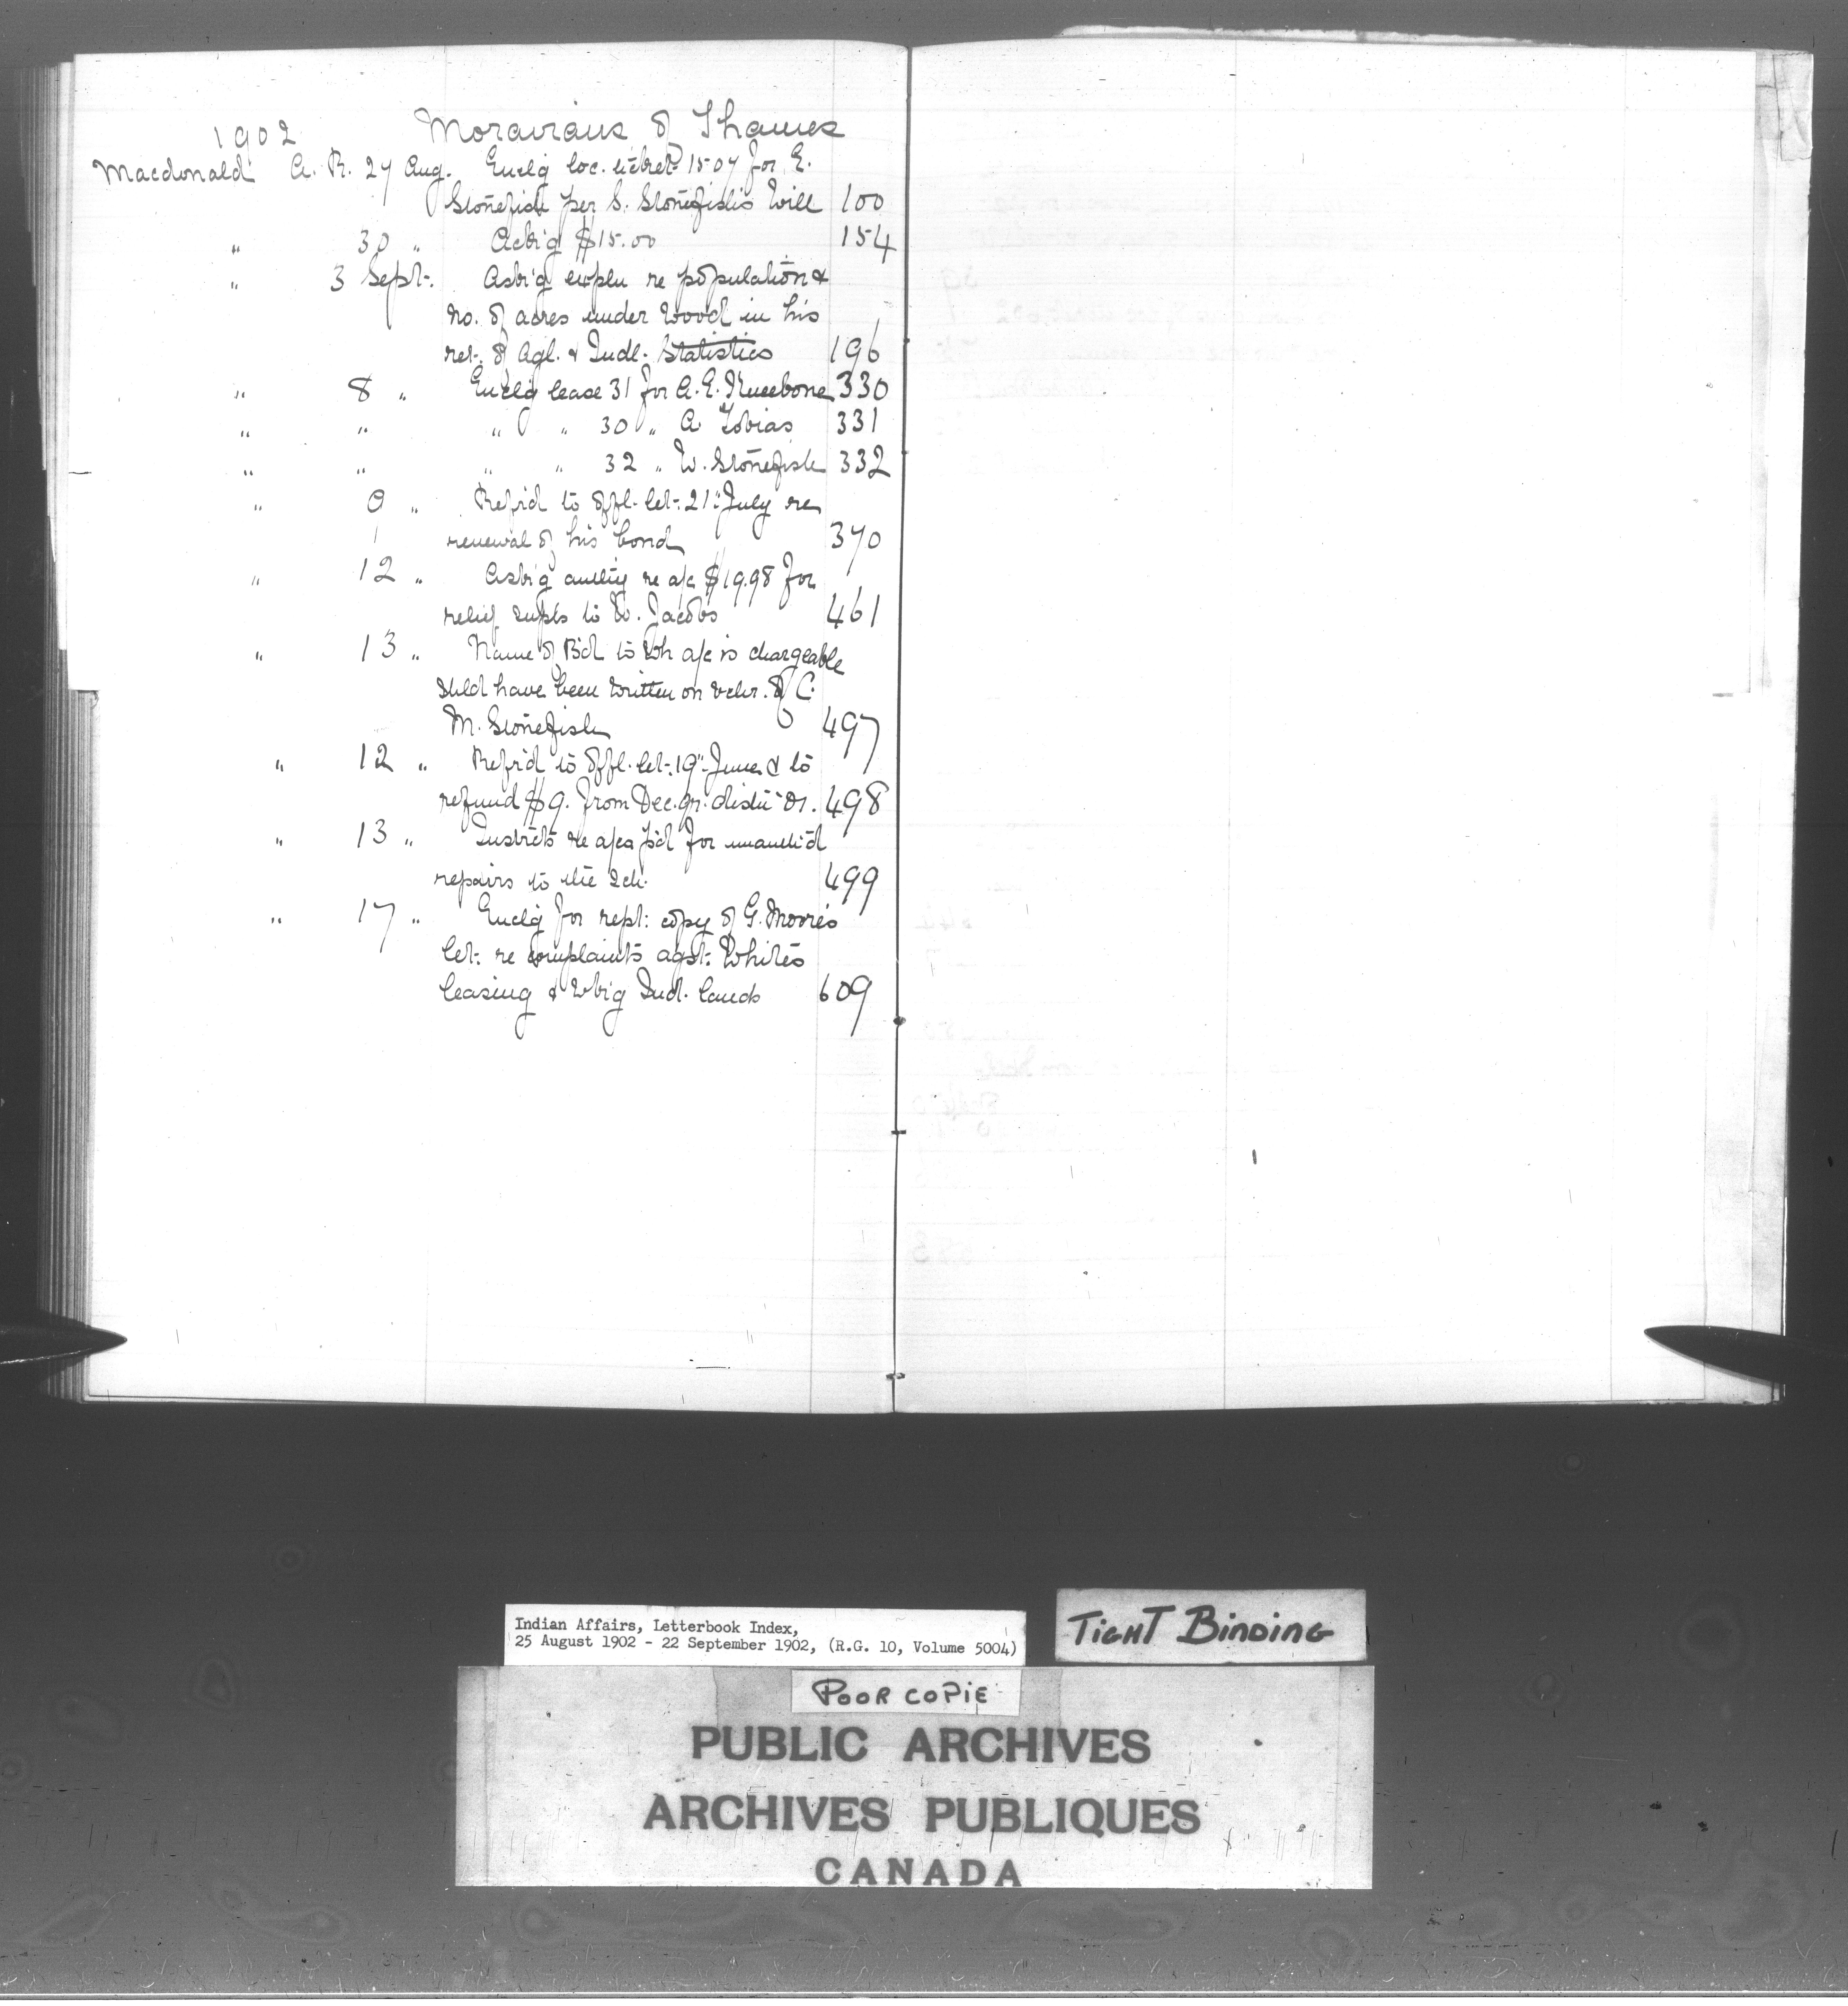 1902 Moravians of Thames
Macdonald A. R. 27 Aug. Enclg loc. ticket 1507 for E.
Stonefish per S. Stonefish's Will 100
" 30 " Ackg $15.00 154
" 3 Sept. Askg expln re population &
no. of acres under wood in his
ret. of Agl. & Indl. Statistics 196
" 8 " Enclg lease 31 for A. E. Huccbone 330
" " " " 30 " A Tobias 331
" " " " 32 " W. Stonefish 332
" 9 " Refrd to offl. let. 21" July re
renewal of his bond 370
" 12 " Askg authy re a/c $19.98 for
relief supls to W. Jacobs 461
" 13 " Name of Bd to wh a/c is chargeable
shld have been written on vchr. of C.
M. Stonefish 497
" 12 " Refrd to offl. let. 19" June & to
refund $9. from Dec. qr. distn 498
" 13 " Instrcts re a/cs pd for unauthd
repairs to the sch. 499
" 17 " Enclg for rept. copy of G. Moore's
let. re complaints agst. Whites
leasing & wkg Ind. lands 609
Indian Affairs, Letterbook Index,
25 August 1902 - 22 September 1902, (R.G. 10, Volume 5004)
TIGHT BINDING
POOR COPIE
PUBLIC ARCHIVES
ARCHIVES PUBLIQUES
CANADA